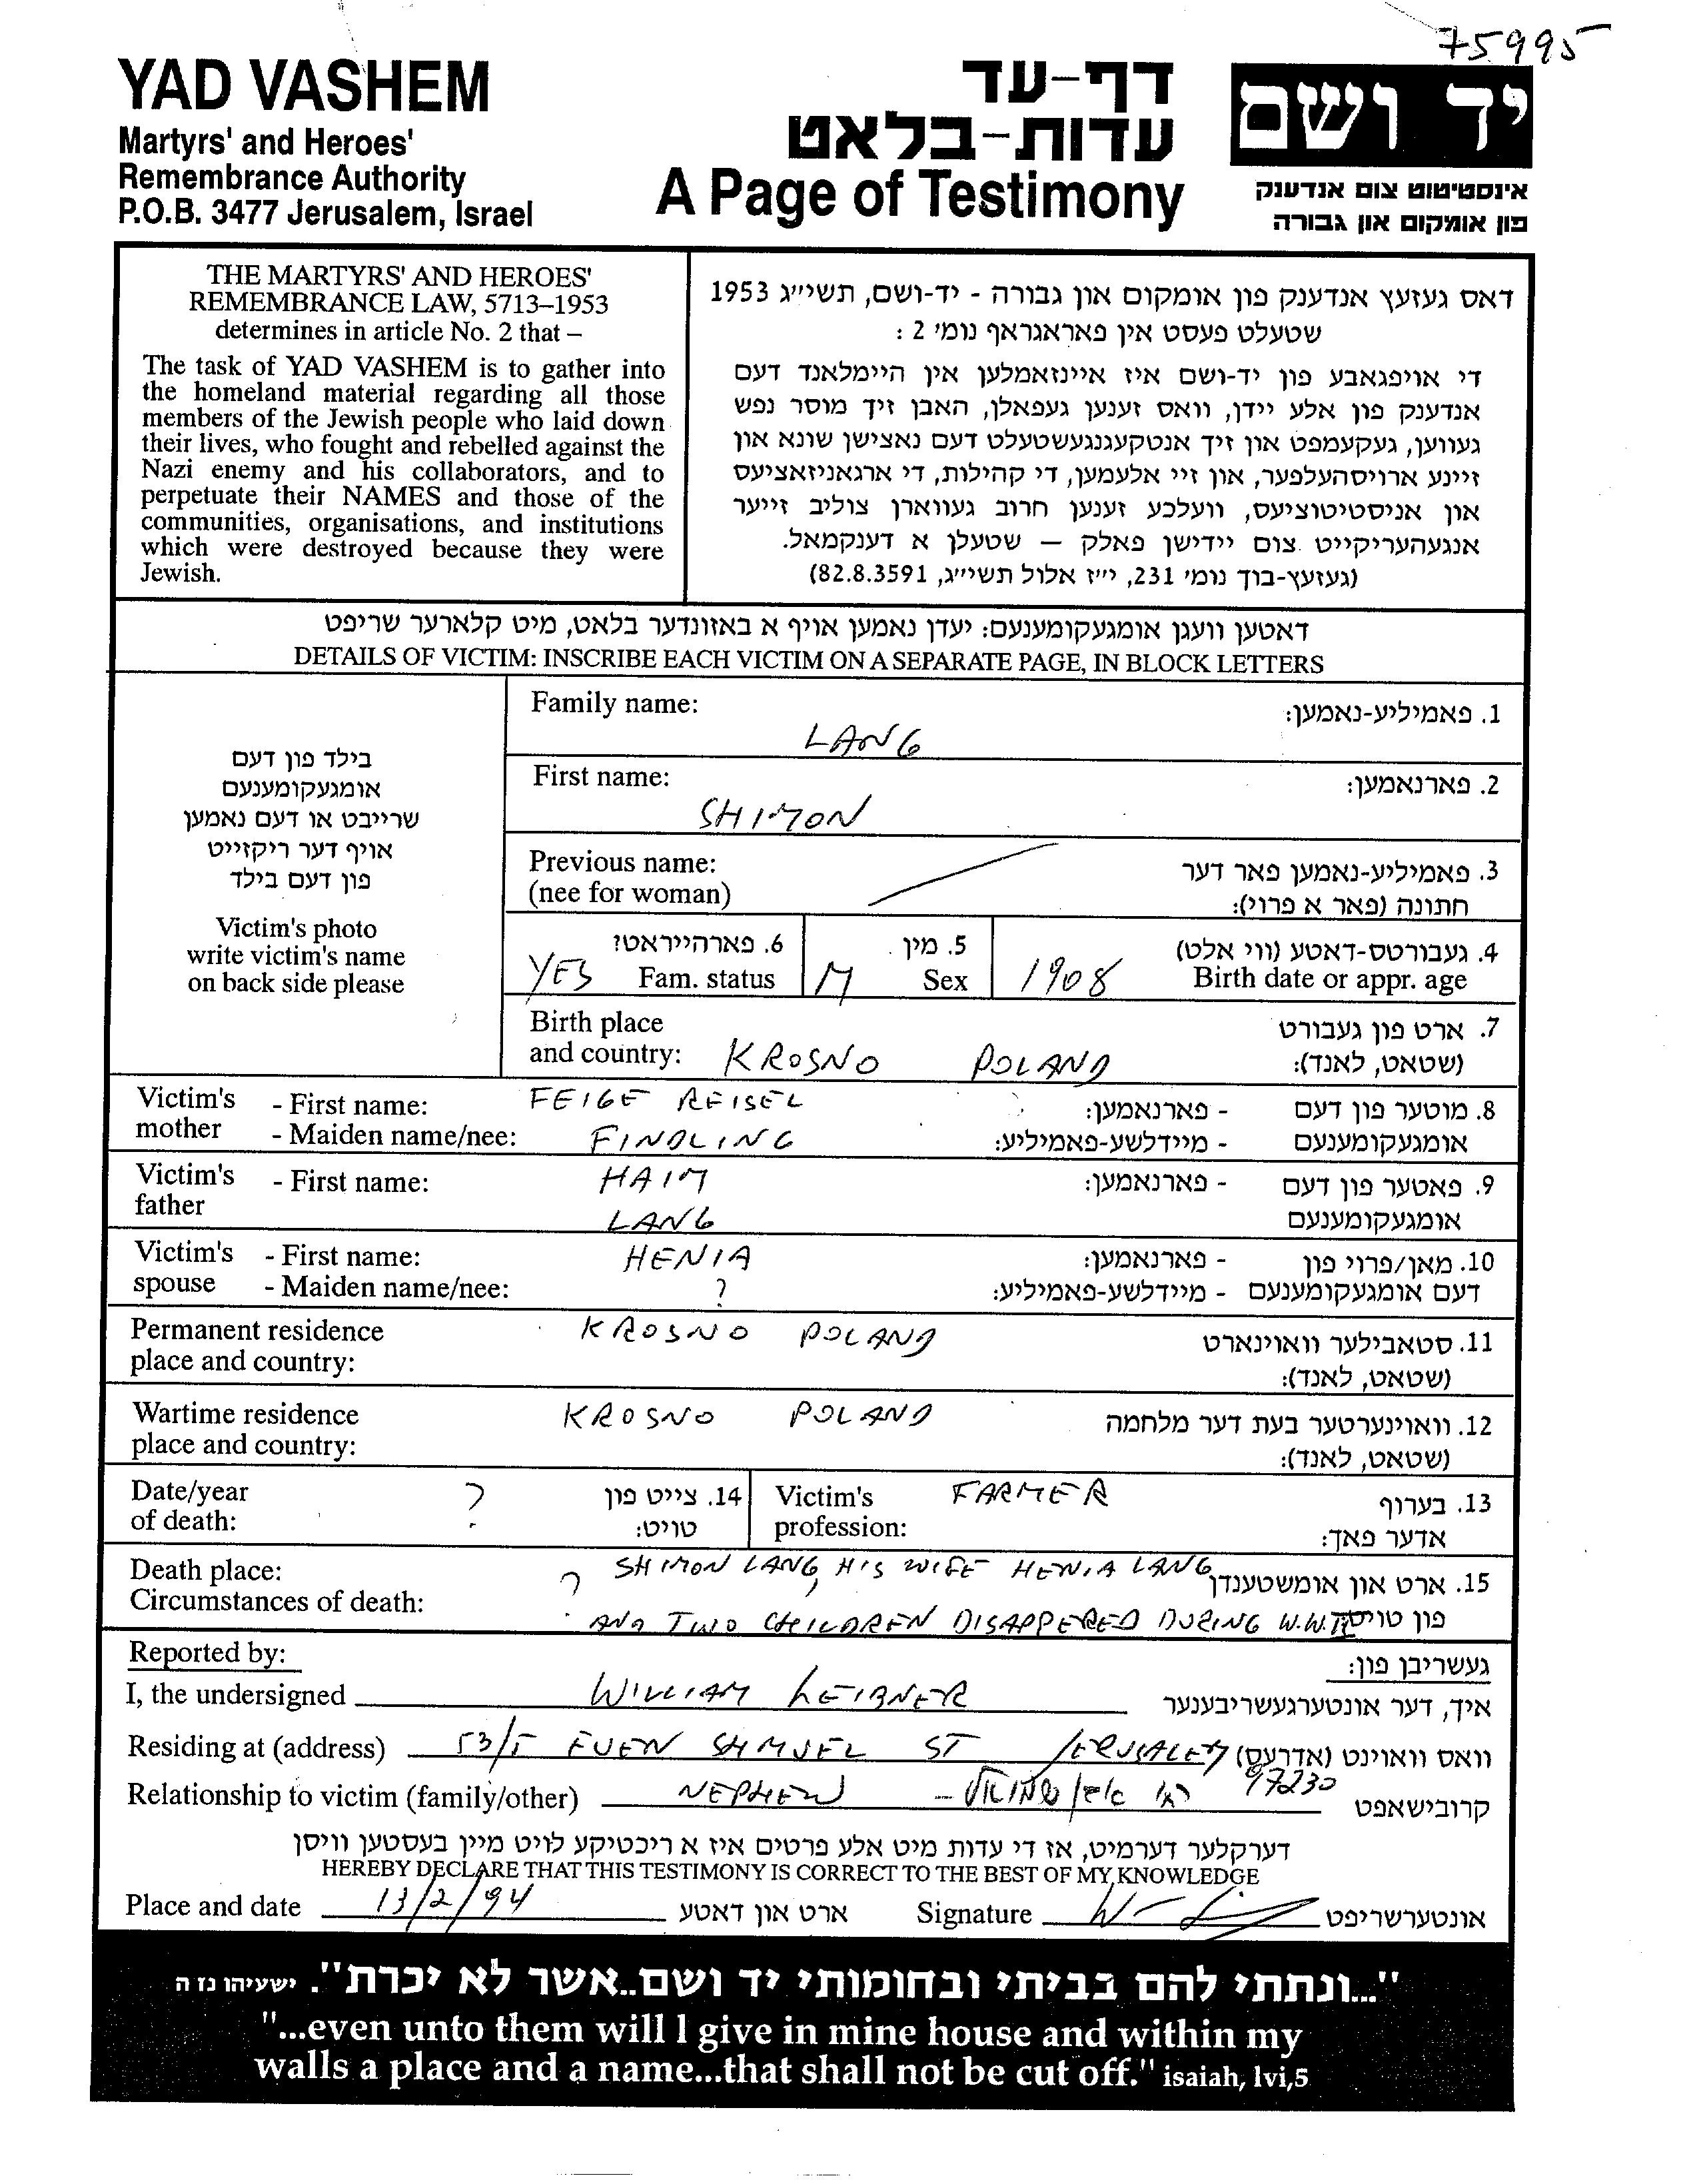 75995
YAD VASHEM
Martyrs' and Heroes'
Remembrance Authority
P.O.B. 3477 Jerusalem, Israel
דף-עד
עדות-בלאט
A Page of Testimony
יד ושם
אינסטיטוט צום אנדענק
פון אומקום און גבורה
THE MARTYRS' AND HEROES'
REMEMBRANCE LAW, 5713–1953
determines in article No. 2 that –
The task of YAD VASHEM is to gather into
the homeland material regarding all those
members of the Jewish people who laid down
their lives, who fought and rebelled against the
Nazi enemy and his collaborators, and to
perpetuate their NAMES and those of the
communities, organisations, and institutions
which were destroyed because they were
Jewish.
דאס געזעץ אנדענק פון אומקום און גבורה - יד-ושם, תשי״ג 1953
שטעלט פעסט אין פאראגראף נומ׳ 2 :
די אויפגאבע פון יד-ושם איז איינזאמלען אין היימלאנד דעם
אנדענק פון אלע יידן, וואס זענען געפאלן, האבן זיך מוסר נפש
געווען, געקעמפט און זיך אנטקעגנגעשטעלט דעם נאצישן שונא און
זיינע ארויסהעלפער, און זיי אלעמען, די קהילות, די ארגאניזאציעס
און אניסטיטוציעס, וועלכע זענען חרוב געווארן צוליב זייער
אנגעהעריקייט צום יידישן פאלק — שטעלן א דענקמאל.
(געזעץ-בוך נומ׳ 231, י״ז אלול תשי״ג, 82.8.3591)
דאטען וועגן אומגעקומענעם: יעדן נאמען אויף א באזונדער בלאט, מיט קלארער שריפט
DETAILS OF VICTIM: INSCRIBE EACH VICTIM ON A SEPARATE PAGE, IN BLOCK LETTERS
בילד פון דעם
אומגעקומענעם
שרייבט או דעם נאמען
אויף דער ריקזייט
פון דעם בילד
Victim's photo
write victim's name
on back side please
Family name: LANG 1. פאמיליע-נאמען:
First name: SHIMON 2. פארנאמען:
Previous name: 3. פאמיליע-נאמען פאר דער
(nee for woman) חתונה (פאר א פרוי):
6. פארהייראט? 5. מין 4. געבורטס-דאטע (ווי אלט)
YES Fam. status M Sex 1908 Birth date or appr. age
Birth place 7. ארט פון געבורט
and country: KROSNO POLAND (שטאט, לאנד):
Victim's - First name: FEIGE REISEL - פארנאמען: 8. מוטער פון דעם
mother - Maiden name/nee: FINDLING - מיידלשע-פאמיליע: אומגעקומענעם
Victim's - First name: HAIM - פארנאמען: 9. פאטער פון דעם
father LANG אומגעקומענעם
Victim's - First name: HENIA - פארנאמען: 10. מאן/פרוי פון
spouse - Maiden name/nee: ? - מיידלשע-פאמיליע: דעם אומגעקומענעם
Permanent residence KROSNO POLAND 11. סטאבילער וואוינארט
place and country: (שטאט, לאנד):
Wartime residence KROSNO POLAND 12. וואוינערטער בעת דער מלחמה
place and country: (שטאט, לאנד):
Date/year ? 14. צייט פון Victim's FARMER 13. בערוף
of death: טויט: profession: אדער פאך:
Death place: ? SHIMON LANG, HIS WIFE HENIA LANG 15. ארט און אומשטענדן
Circumstances of death: AND TWO CHILDREN DISAPPERED DURING W.W.II פון טויט
Reported by: געשריבן פון:
I, the undersigned WILLIAM LEIBNER איך, דער אונטערגעשריבענער
Residing at (address) 53/5 EVEN SHMUEL ST JERUSALEM וואס וואוינט (אדרעס)
97230
Relationship to victim (family/other) NEPHEW - קרובישאפט
דערקלער דערמיט, אז די עדות מיט אלע פרטים איז א ריכטיקע לויט מיין בעסטען וויסן
HEREBY DECLARE THAT THIS TESTIMONY IS CORRECT TO THE BEST OF MY KNOWLEDGE
Place and date 13/2/94 ארט און דאטע Signature אונטערשריפט
"...ונתתי להם בביתי ובחומותי יד ושם..אשר לא יכרת". ישעיהו נז ה
"...even unto them will I give in mine house and within my
walls a place and a name...that shall not be cut off." isaiah, lvi,5